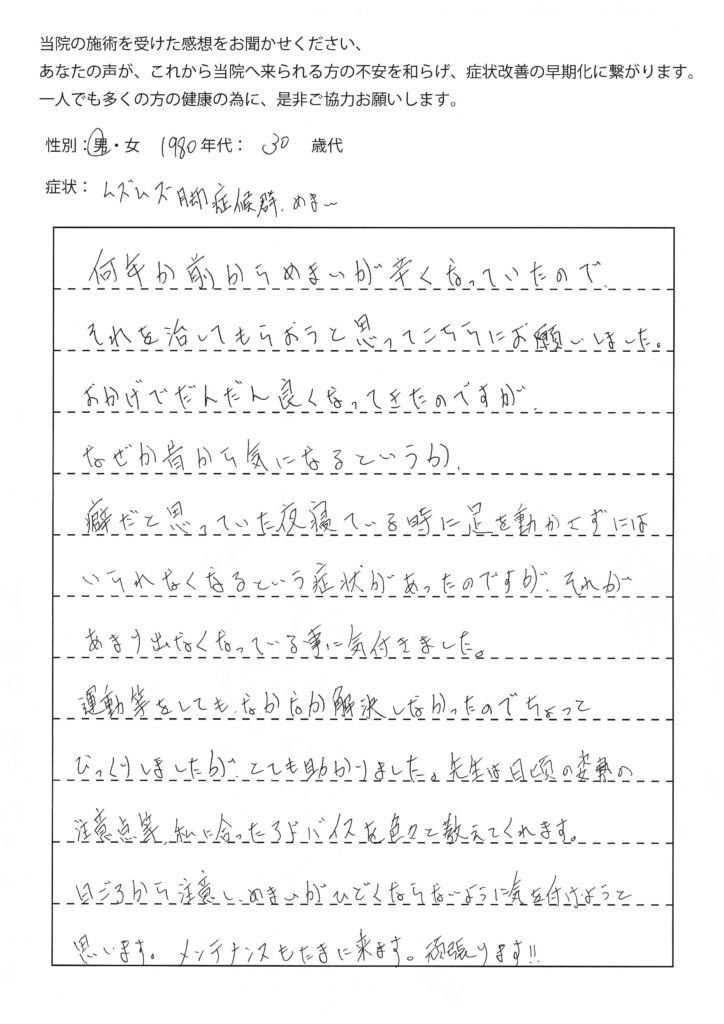 当院の施術を受けた感想をお聞かせください、
あなたの声が、これから当院へ来られる方の不安を和らげ、症状改善の早期化に繋がります。
一人でも多くの方の健康の為に、是非ご協力お願いします。
性別：男・女 1980年代： 30 歳代
症状： ムズムズ脚症候群、めまい
何年か前からめまいが辛くなっていたので、
それを治してもらおうと思ってこちらにお願いしました。
おかげでだんだん良くなってきたのですが、
なぜか昔から気になるというか、
癖だと思っていた夜寝ている時に足を動かさずには
いられなくなるという症状があったのですが、それが
あまり出なくなっている事に気付きました。
運動等をしても、なかなか解決しなかったのでちょって
びっくりしましたが、とても助かりました。先生は日頃の姿勢の
注意点等、私に合ったアドバイスを色々と教えてくれます。
日ごろから注意し、めまいがひどくならないように気を付けようと
思います。メンテナンスもたまに来ます。頑張ります!!